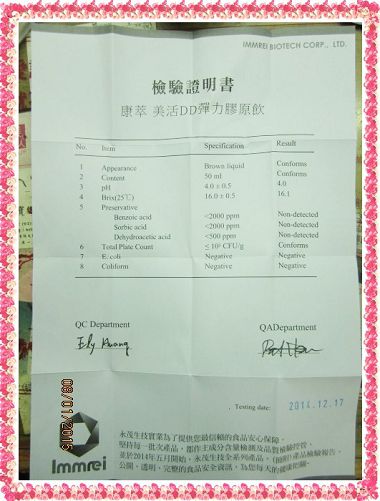 IMMREI BIOTECH CORP., LTD.
檢驗證明書
康萃 美活DD彈力膠原飲
No. Item Specification Result
1 Appearance Brown liquid Conforms
2 Content 50 ml Conforms
3 pH 4.0 ± 0.5 4.0
4 Brix(25℃) 16.0 ± 0.5 16.1
5 Preservative
Benzoic acid <2000 ppm Non-detected
Sorbic acid <2000 ppm Non-detected
Dehydroacetic acid <500 ppm Non-detected
6 Total Plate Count ≤ 10⁵ CFU/g Conforms
7 E. coli Negative Negative
8 Coliform Negative Negative
QC Department QADepartment
Testing date: 2014.12.17
永茂生技實業為了提供您最信賴的食品安心保障，
堅持每一批次產品，都作主成分含量檢測及品質檢驗控管，
並於2014年五月開始，永茂生技全系列產品，產品檢驗報告，
公開、透明、完整的食品安全資訊，為您每天的健康把關。
Immrei
09/01/2015